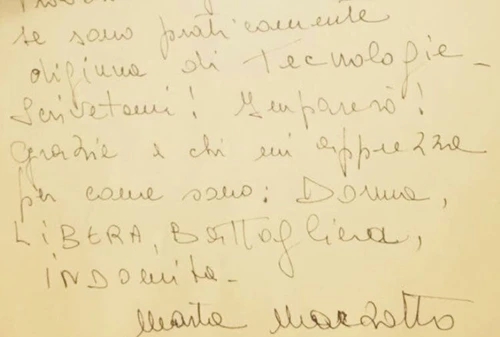 se sono praticamente
digiuna di Tecnologie_
Scrivetemi! Imparerò!
Grazie a chi mi apprezza
per come sono: Donna,
LIBERA, BATTAGLIERA,
INDOMITA_
Marta Marzotto